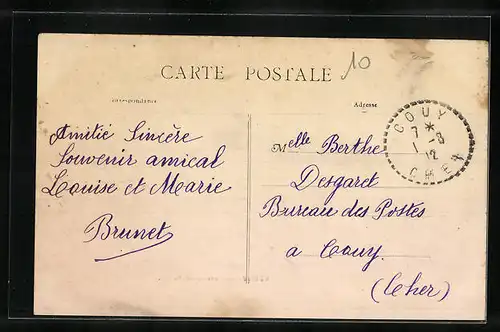 10
CARTE POSTALE
Correspondance
Adresse
Amitié Sincère
Souvenir amical
Louise et Marie
Brunet
Melle Berthe
Desgaret
Bureau des Postes
a Couy.
(Cher)
COUY
7 *
1 - 8
12
CHER